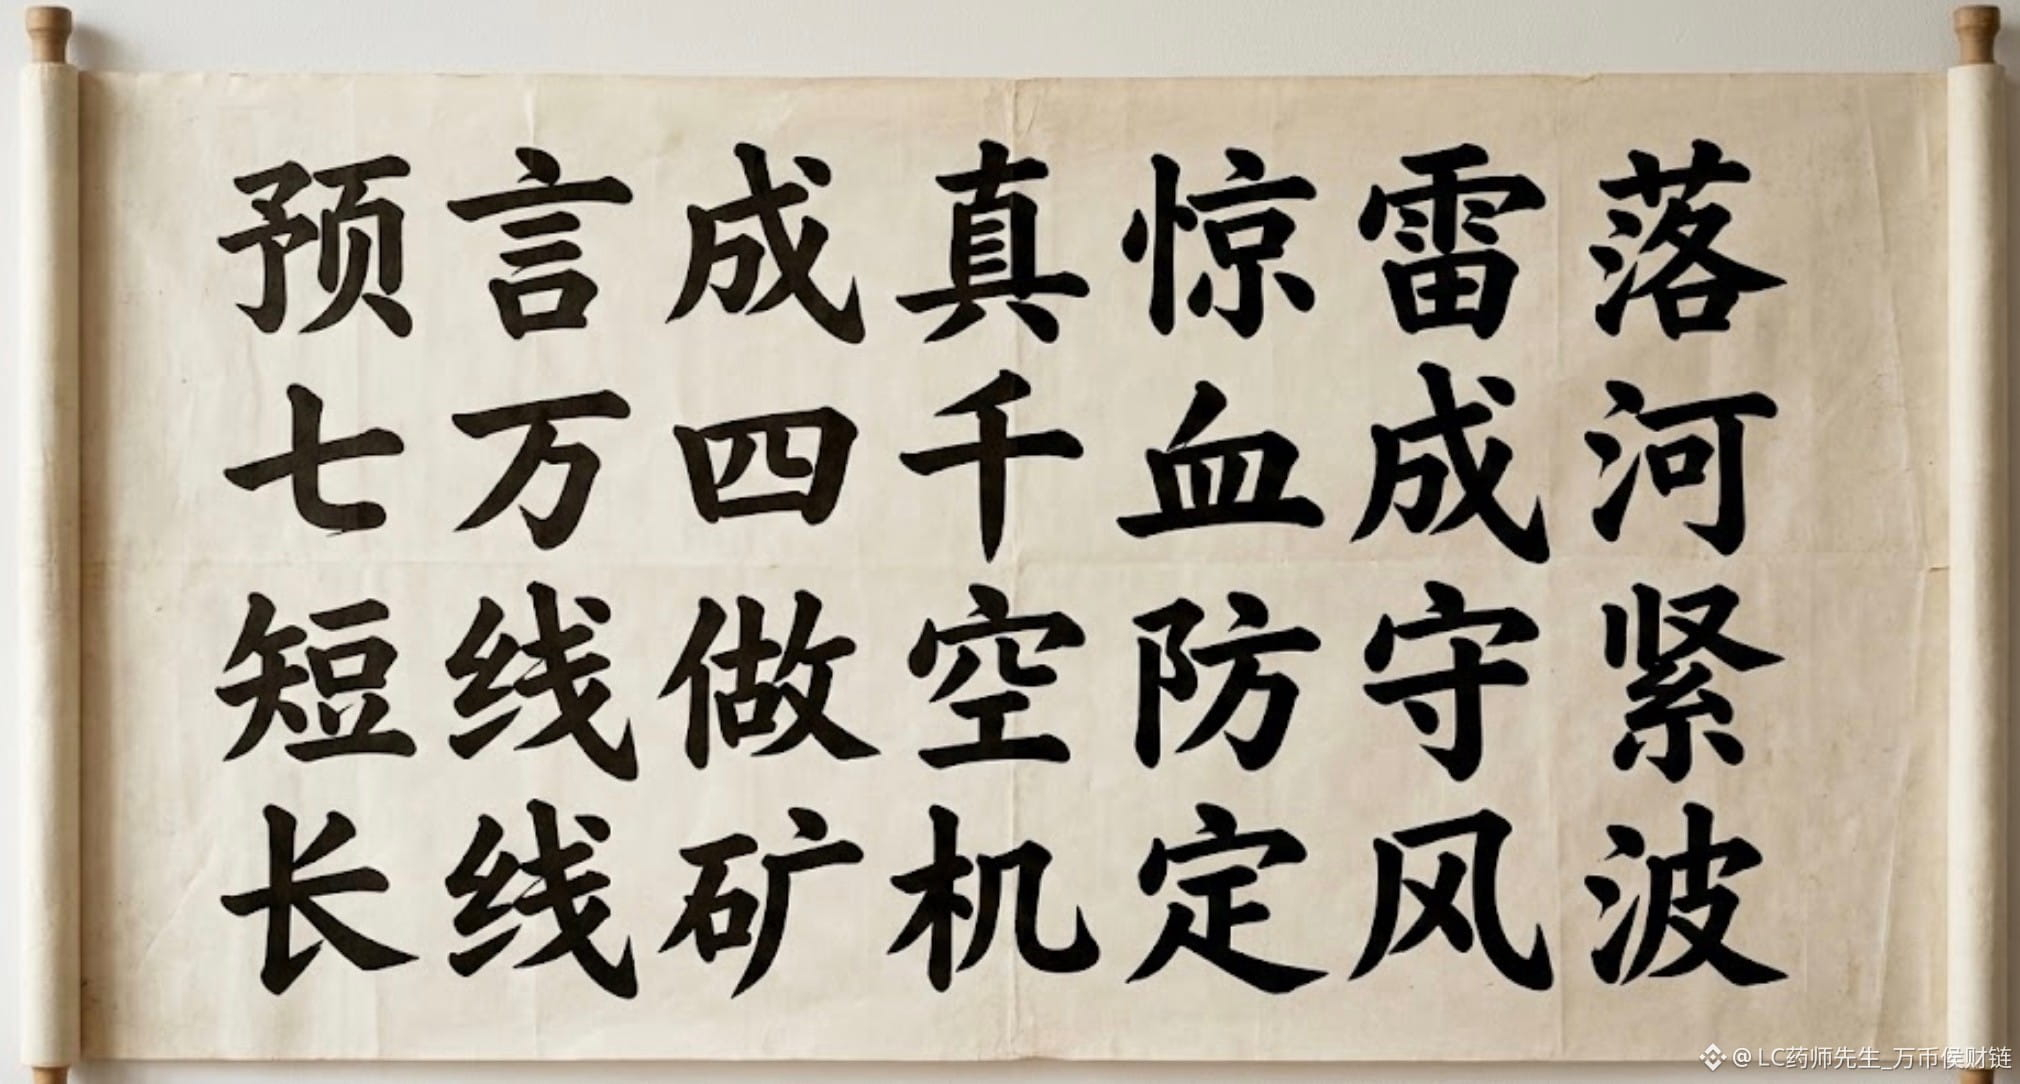 预言成真惊雷落
七万四千血成河
短线做空防守紧
长线矿机定风波
@LC药师先生_万币侯财链